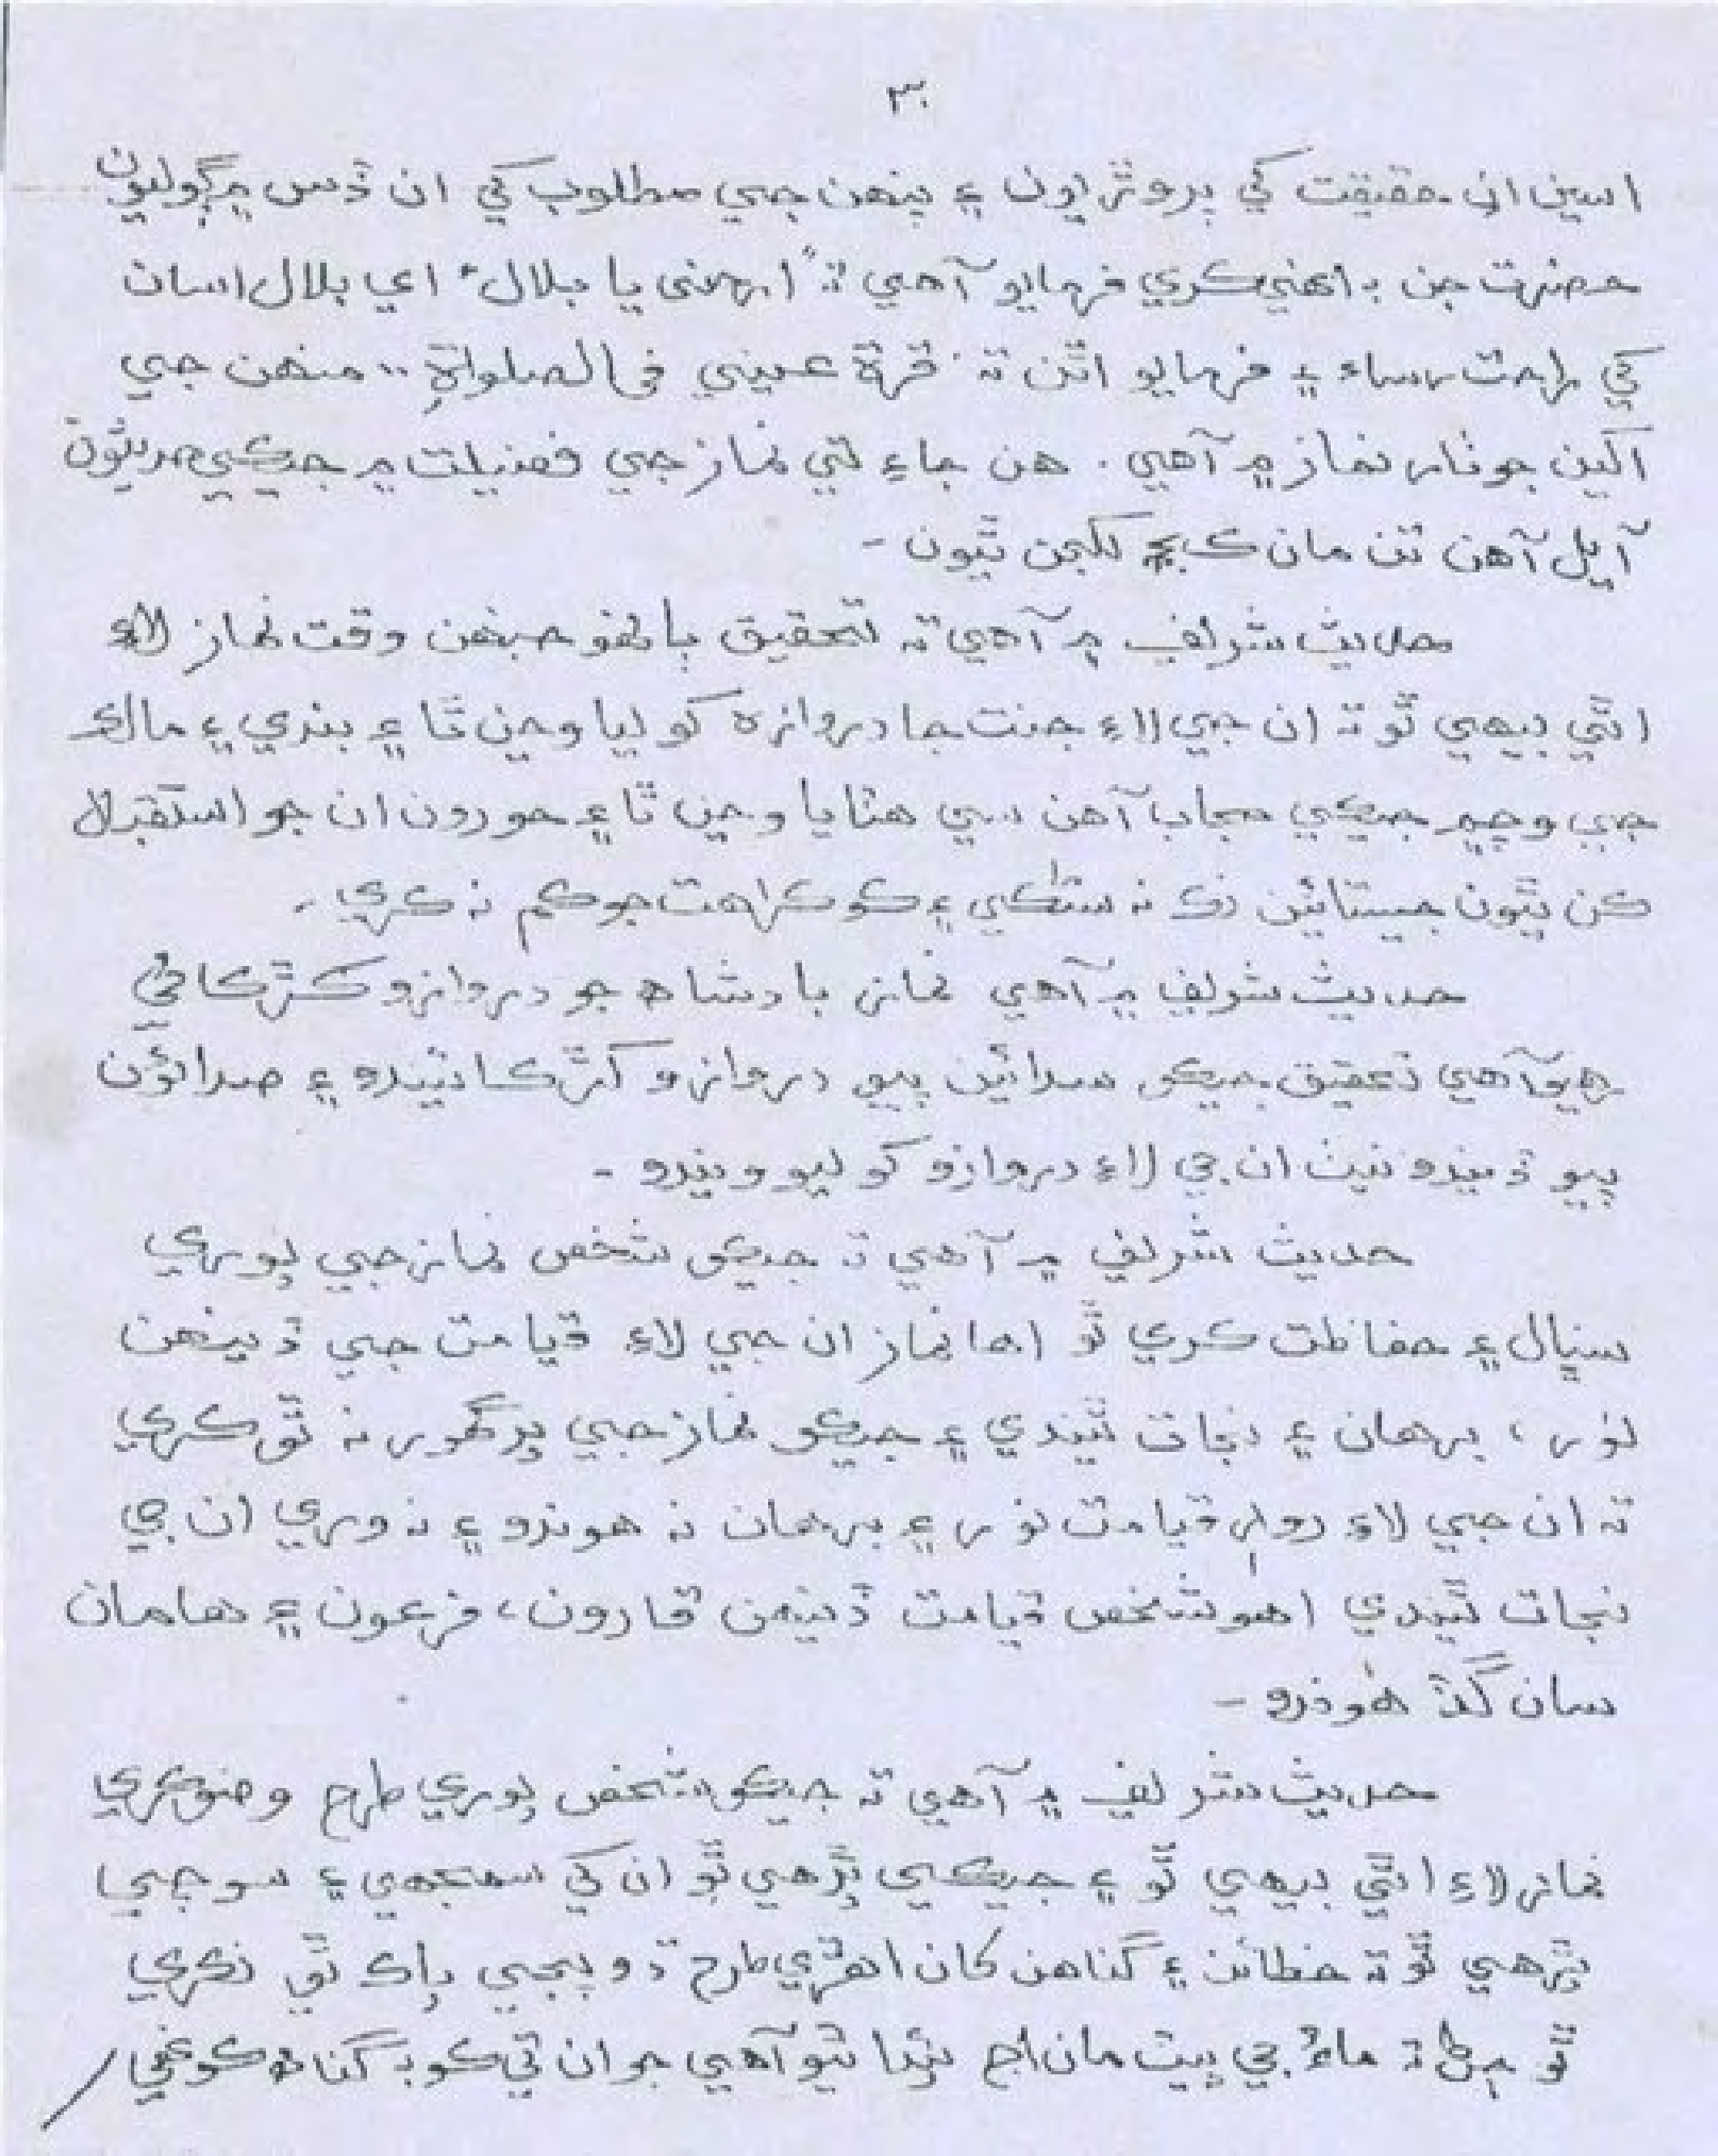 ٣
اسين ان حقيقت کي پروڙيون ۽ پنهن جي مطلوب کي ان ڏس ۾ ڳوليون
حضرت جن به ائين ڪري فرمايو آهي ته "ارحنی يا بلال" اي بلال اسان
کي راحت رساء ۽ فرمايو اٿن ته "قرة عيني في الصلواة" منهن جي
اکين جو ٺار نماز ۾ آهي. هن جاءِ تي نماز جي فضيلت ۾ جيڪي حديثون
آيل آهن تن مان ڪجهه لکجن ٿيون -
حديث شريف ۾ آهي ته تحقيق ٻانهو جنهن وقت نماز لاءِ
اٿي بيهي ٿو ته ان جي لاءِ جنت جا دروازه کوليا وڃن ٿا ۽ بندي ۽ مالڪ
جي وچ ۾ جيڪي حجاب آهن سي هٽايا وڃن ٿا ۽ حورون ان جو استقبال
ڪن ٿيون جيستائين نڪ نه سڻڪي ۽ ڪو ڪراهت جو ڪم نه ڪري.
حديث شريف ۾ آهي نماز بادشاه جو دروازو کڙڪائي
رهيو آهي تحقيق جيڪو سدائين پيو دروازو کڙڪائيندو ۽ صدائون
پيو ڏيندو نيٺ ان جي لاءِ دروازو کوليو ويندو -
حديث شريف ۾ آهي ته جيڪو شخص نماز جي پوري
سنڀال ۽ حفاظت ڪري ٿو اها نماز ان جي لاءِ قيامت جي ڏينهن
نور، برهان ۽ نجات ٿيندي ۽ جيڪو نماز جي پرگهور نه ٿو ڪري
ته ان جي لاءِ روز قيامت نور ۽ برهان نه هوندو ۽ نه وري ان جي
نجات ٿيندي اهو شخص قيامت ڏينهن قارون، فرعون ۽ هامان
سان گڏ هوندو -
حديث شريف ۾ آهي ته جيڪو شخص پوري طرح وضو ڪري
نماز لاءِ اٿي بيهي ٿو ۽ جيڪي پڙهي ٿو ان کي سمجهي ۽ سوچي
پڙهي ٿو ته خطائن ۽ گناهن کان اهڙي طرح ڌوپجي پاڪ ٿي نڪري
ٿو ته ماءُ جي پيٽ مان اڄ پيدا ٿيو آهي جو ان تي ڪو به گناه ڪونهي